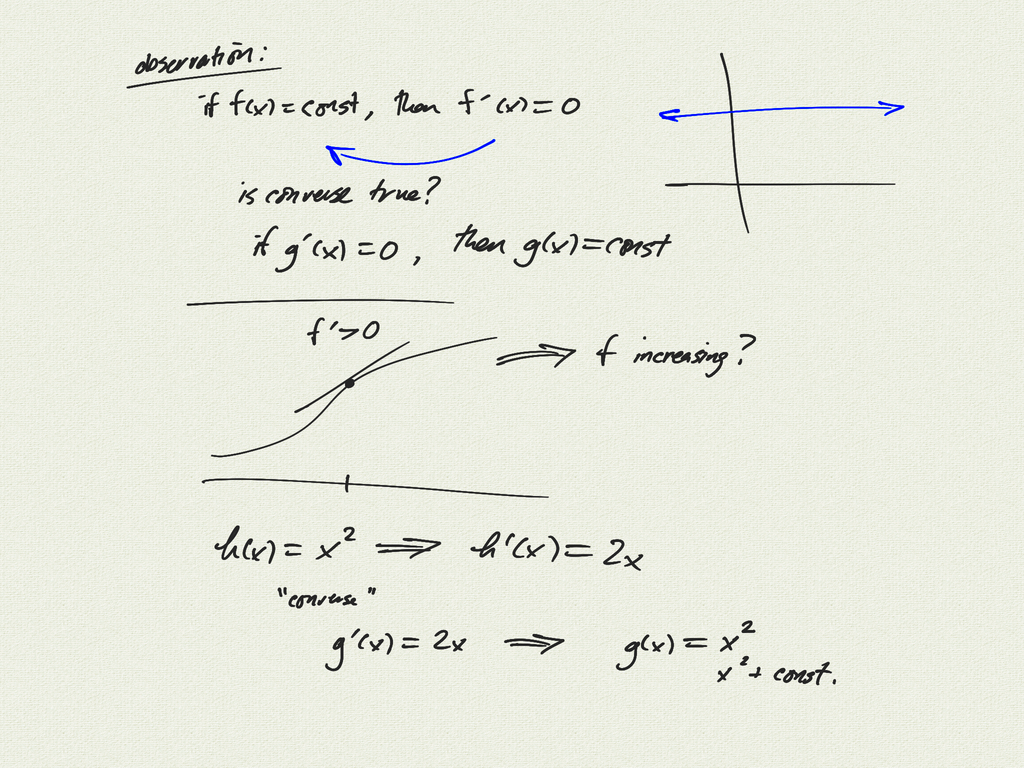 observation:
if f(x) = const, then f'(x) = 0
is converse true?
if g'(x) = 0, then g(x) = const
f' > 0
⟹ f increasing?
h(x) = x² ⟹ h'(x) = 2x
"converse"
g'(x) = 2x ⟹ g(x) = x²
x² + const.